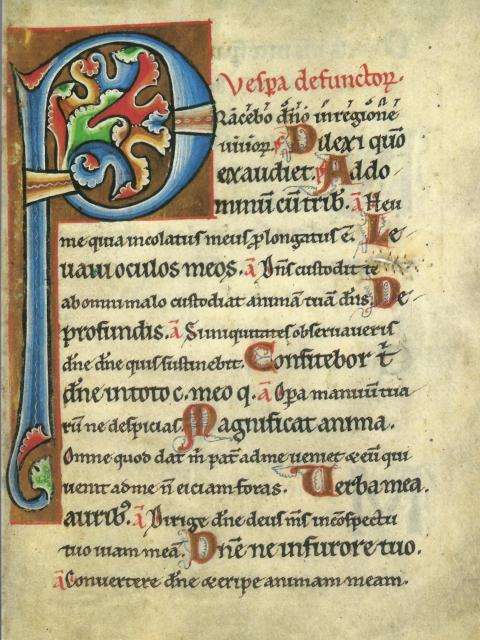 Vespa defunctor.
Placebo dño in regione
uiuor. Dilexi qũo
exaudiet. Ad do
minũ cũ trib. ã Heu
me quia incolatus meus plongatus ẽ. Le
uaui oculos meos. ã Dñs custodit te
ab omni malo custodiat animã tuã dñs. De
profundis. ã Si iniquitates obseruaueris
dñe dñe quis sustinebit. Confitebor t̃
dñe in toto c. meo q. ã Opa manuũ tua
rũ ne despicias. Magnificat anima.
Omne quod dat m̃ pat̃ ad me ueniet & eũ qui
uenit ad me ñ eiciam foras. Verba mea.
aurib. ã Dirige dñe deus m̃s in cõspectu
tuo uiam mea. Dñe ne in furore tuo.
ã Conuertere dñe & eripe animam meam.